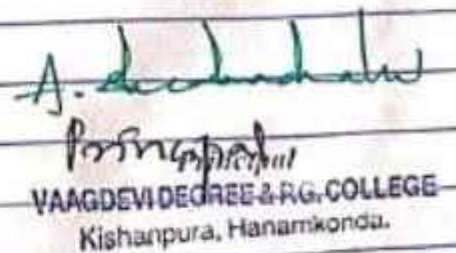 A.
Principal
VAAGDEVI DEGREE & P.G. COLLEGE
Kishanpura, Hanamkonda.